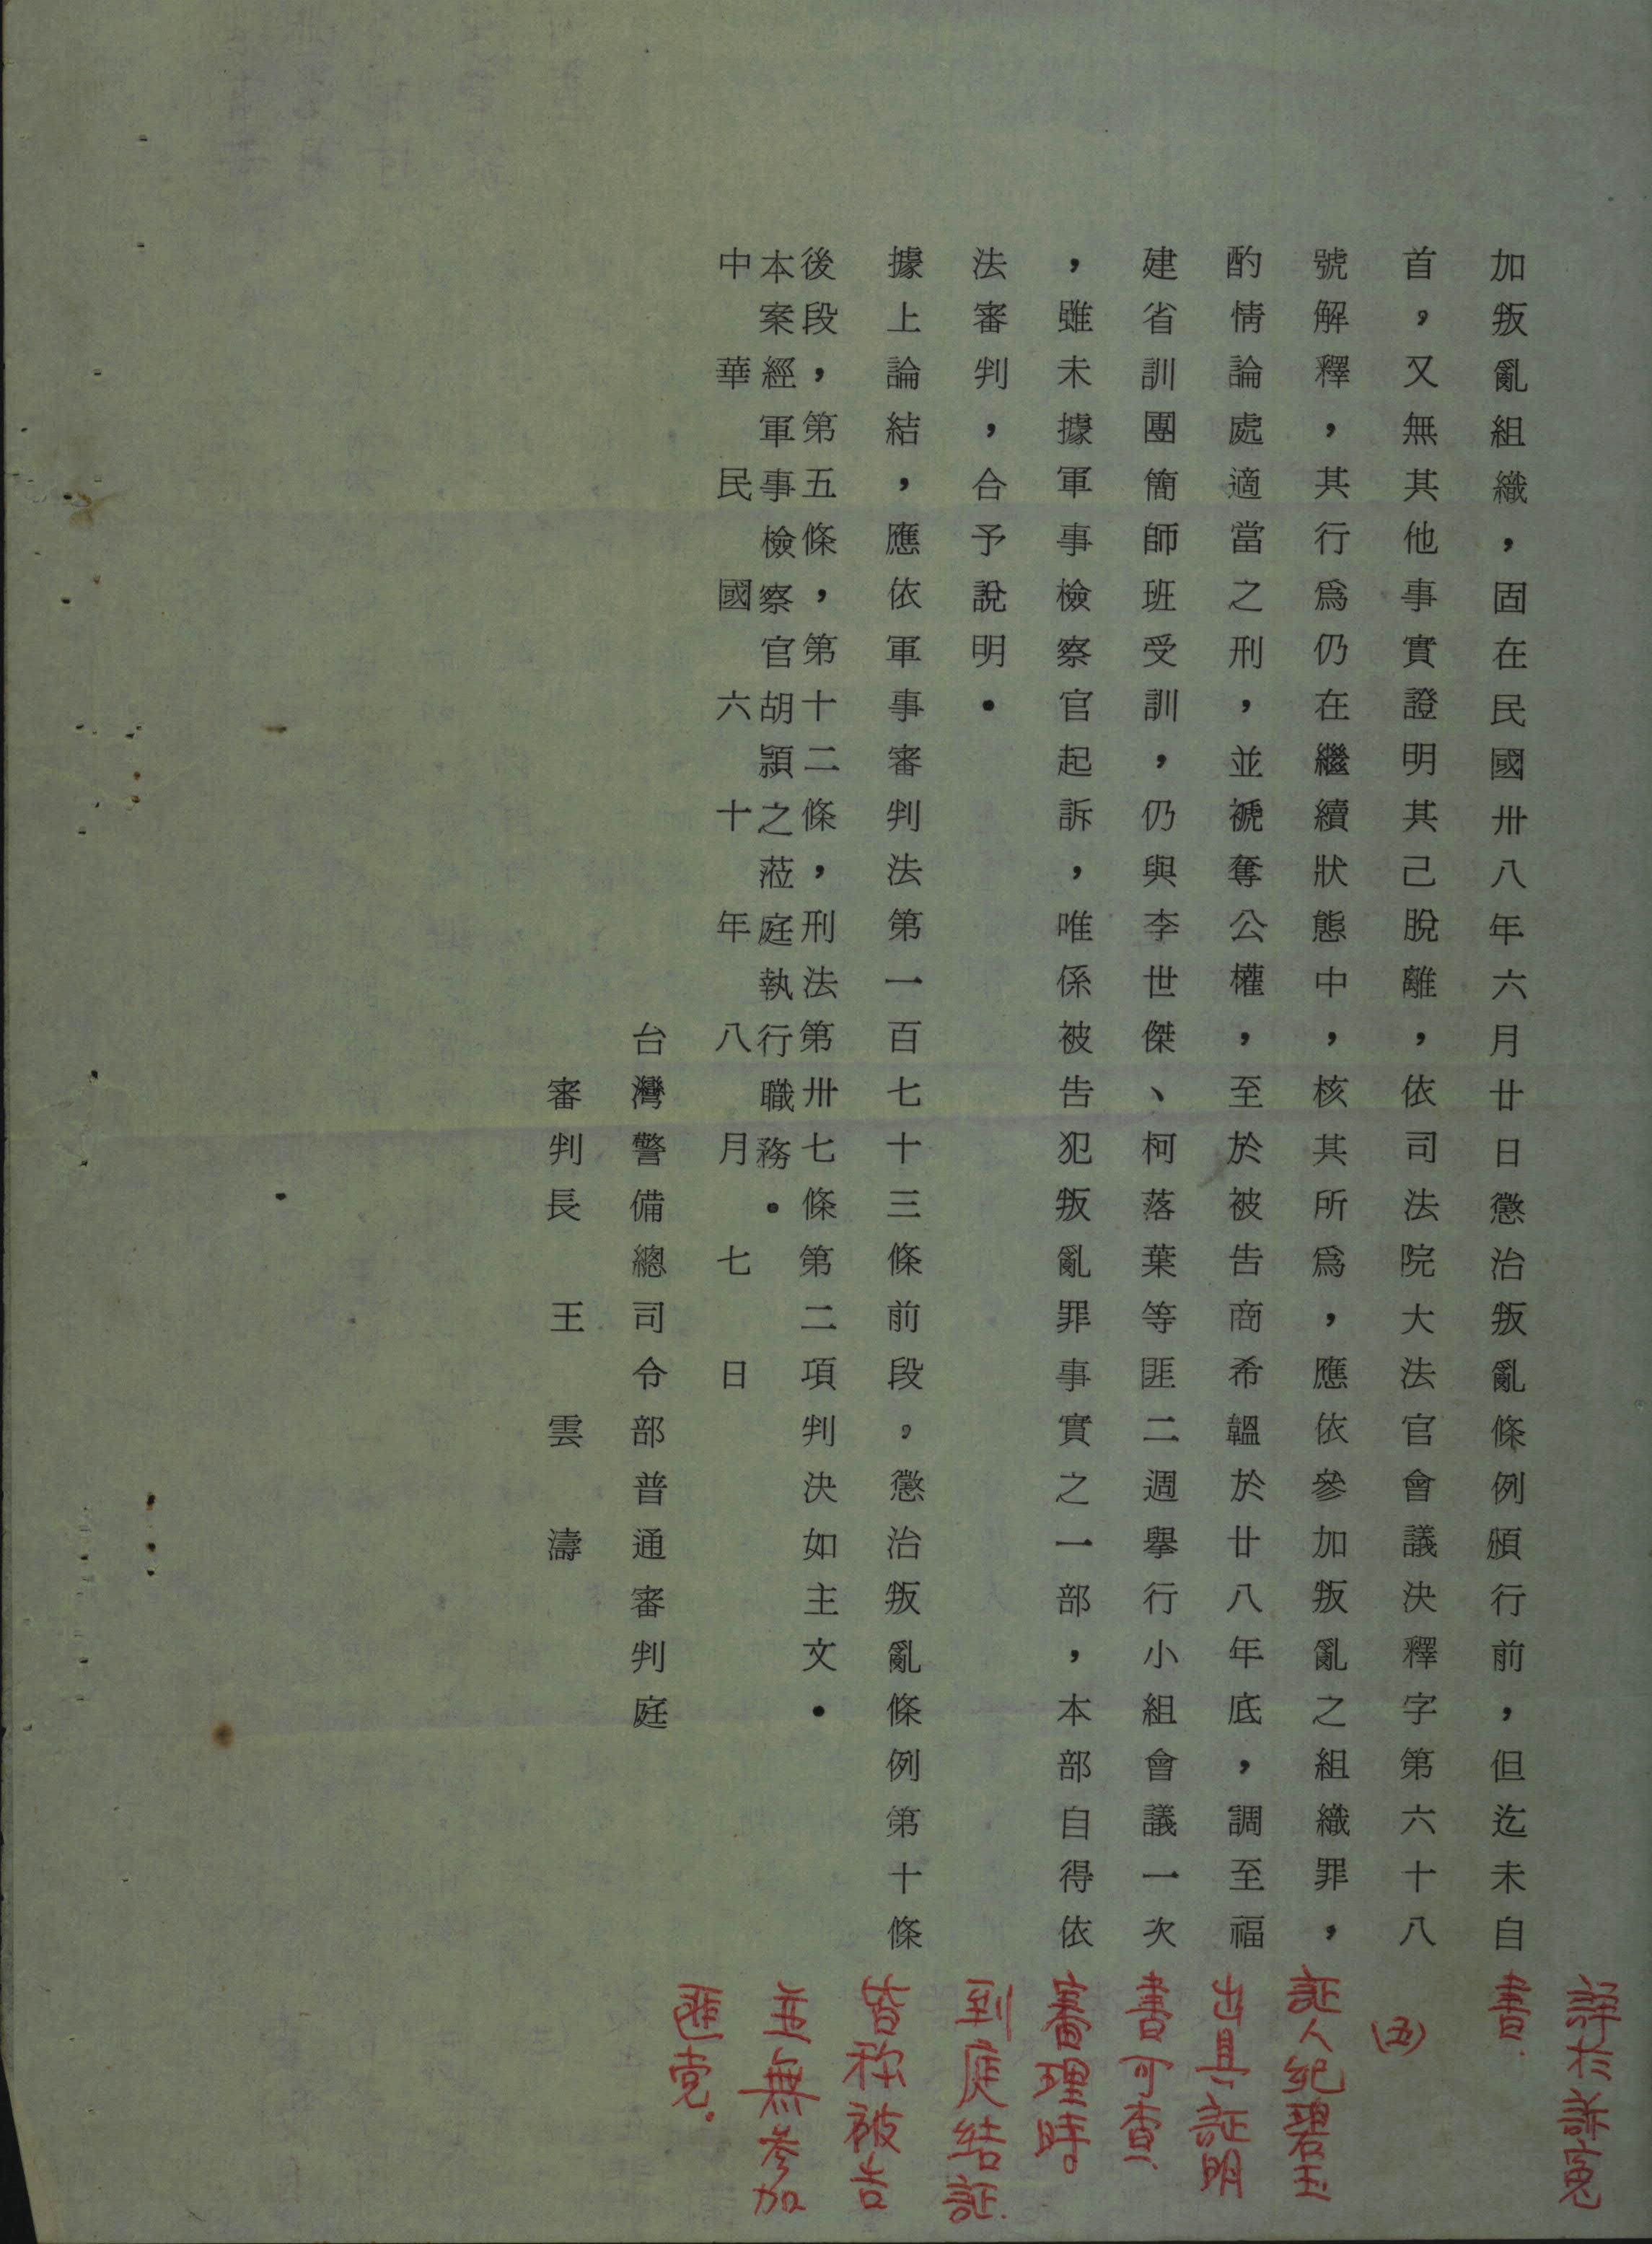 加叛亂組織，固在民國卅八年六月廿日懲治叛亂條例頒行前，但迄未自
首，又無其他事實證明其己脫離，依司法院大法官會議決釋字第六十八
號解釋，其行爲仍在繼續狀態中，核其所爲，應依參加叛亂之組織罪，
酌情論處適當之刑，並褫奪公權，至於被告商希韞於廿八年底，調至福
建省訓團簡師班受訓，仍與李世傑、柯落葉等匪二週舉行小組會議一次
，雖未據軍事檢察官起訴，唯係被告犯叛亂罪事實之一部，本部自得依
法審判，合予說明．
據上論結，應依軍事審判法第一百七十三條前段。懲治叛亂條例第十條
後段，第五條，第十二條，刑法第卅七條第二項判決如主文．
本案經軍事檢察官胡頴之蒞庭執行職務．
中華民國六十年八月七日
台灣警備總司令部普通審判庭
審判長王雲濤
詳於訴冤
書．
(五)
証人紀碧玉
出具証明
書可查．
審理時
到庭結証．
皆称被告
並無参加
匪党．